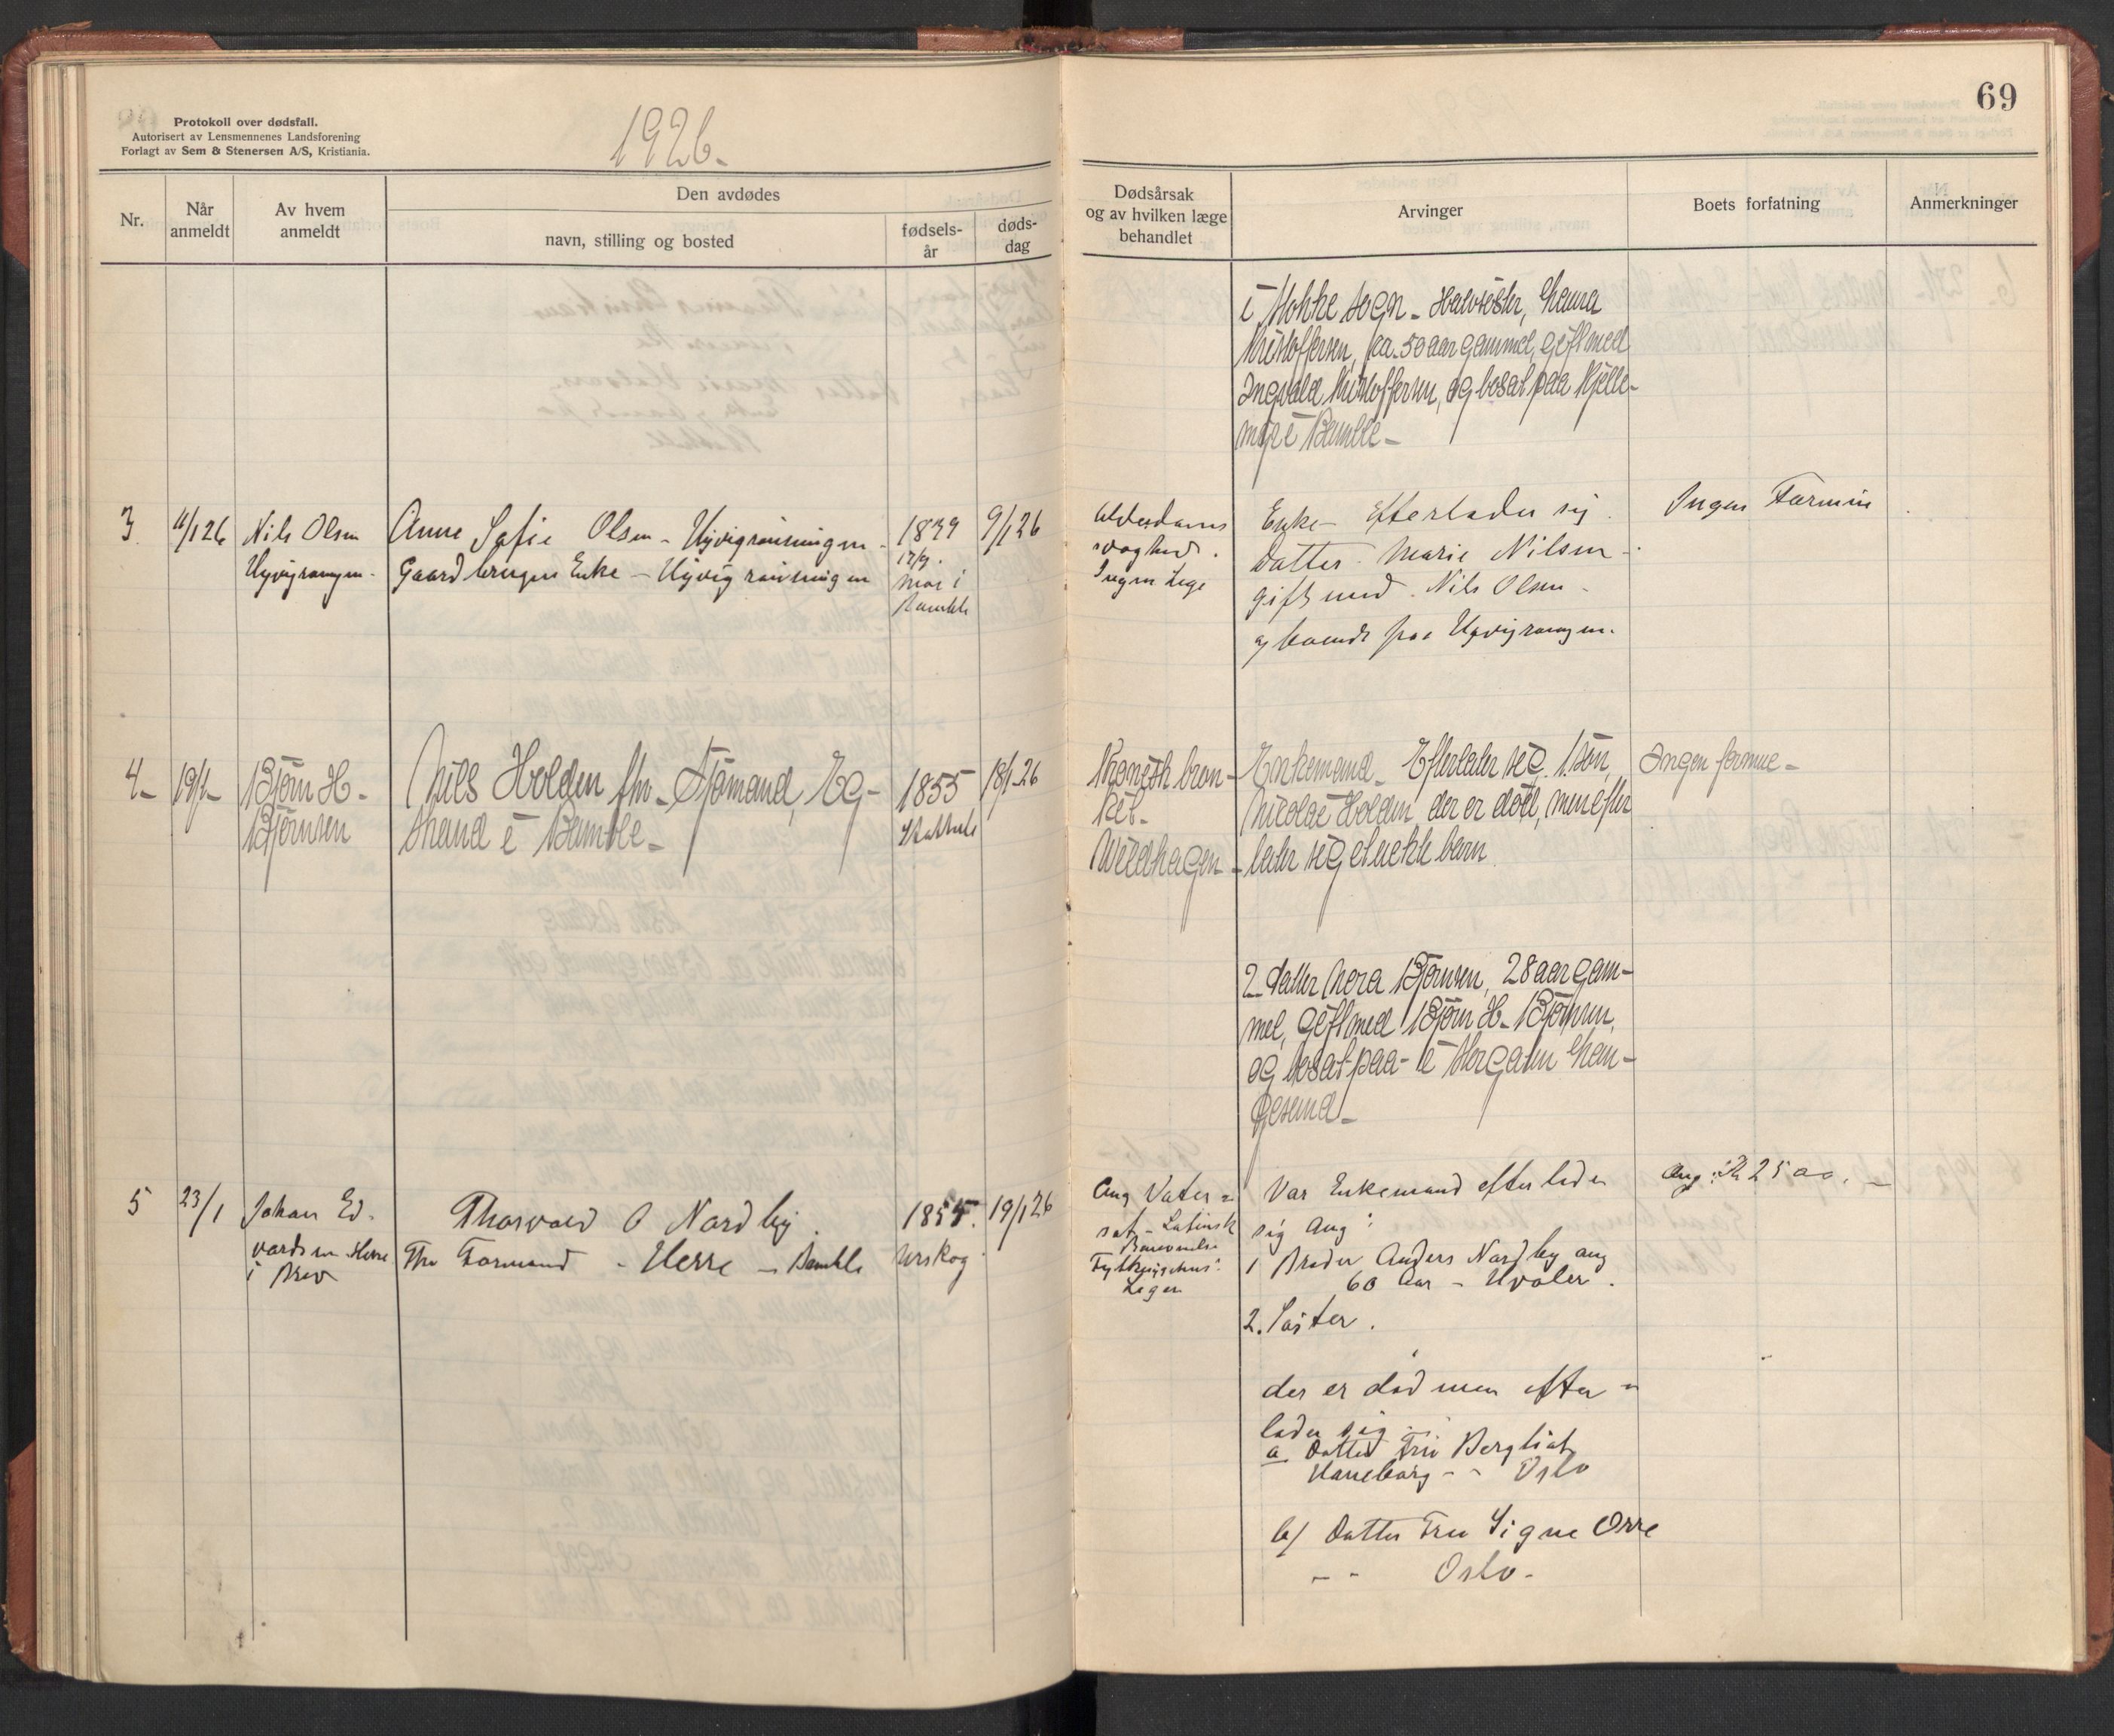 Protokoll over dødsfall.
Autorisert av Lensmennenes Landsforening
Forlagt av Sem & Stenersen A/S, Kristiania.
1926.
69
Nr.
Når anmeldt
Av hvem anmeldt
Den avdødes
navn, stilling og bosted
fødselsår
dødsdag
Dødsårsak
og av hvilken læge
behandlet
Arvinger
Boets forfatning
Anmerkninger
sogn - Halvsøster, Laura
Kristoffersen, ca. 50 aar gammel, gift med
Ingvald Kristoffersen, og bosat paa Kjelle-
i Bamble -
3
11/1 26
Nils Olsen
Anne Sofie Olsen -
Gaardbruger Enke -
1839
17/9.
i
Bamble
9/1 26
Alderdoms
svaghed.
Ingen Læge
Enke - Efterlader sig
Datter Marie Nilsen -
gift med Nils Olsen -
og boende paa
Ingen Formue
4-
19/1-
Bjørn H-
Bjørnsen
Nils Holden fhv- Sjømand, Eg-
strand i Bamble -
1855
18/1-26
Kronisk bron-
kit-
Wildhagen -
Enkemand - Efterlater sig 1. søn,
Nicolai Holden, der er død, men efter
later sig et uekte barn
2 datter Nora Bjørnsen, 28 aar gam-
mel, gift med Bjørn H- Bjørnsen,
og bosat paa - i Lan-
gesund -
Ingen formue -
5
23/1
Johan Ed-
vardsen Herre
i Brev
Thorvald O Nordby.
Fhv Formand - Herre - Bamble
1855.
Urskog
19/1 26
Ang Vater-
sot - Latinsk
Lægen
Var Enkemand efterlader
sig Ang:
1 Broder Anders Nordby ang
60 Aar - Hvaler.
2. Søster.
der er død men efter-
lader sig
a Datter Fru Bergliot
Haneborg - - Oslo
b/ Datter Fru Signe Orre
- - Oslo -
Ang: Kr 2500. -